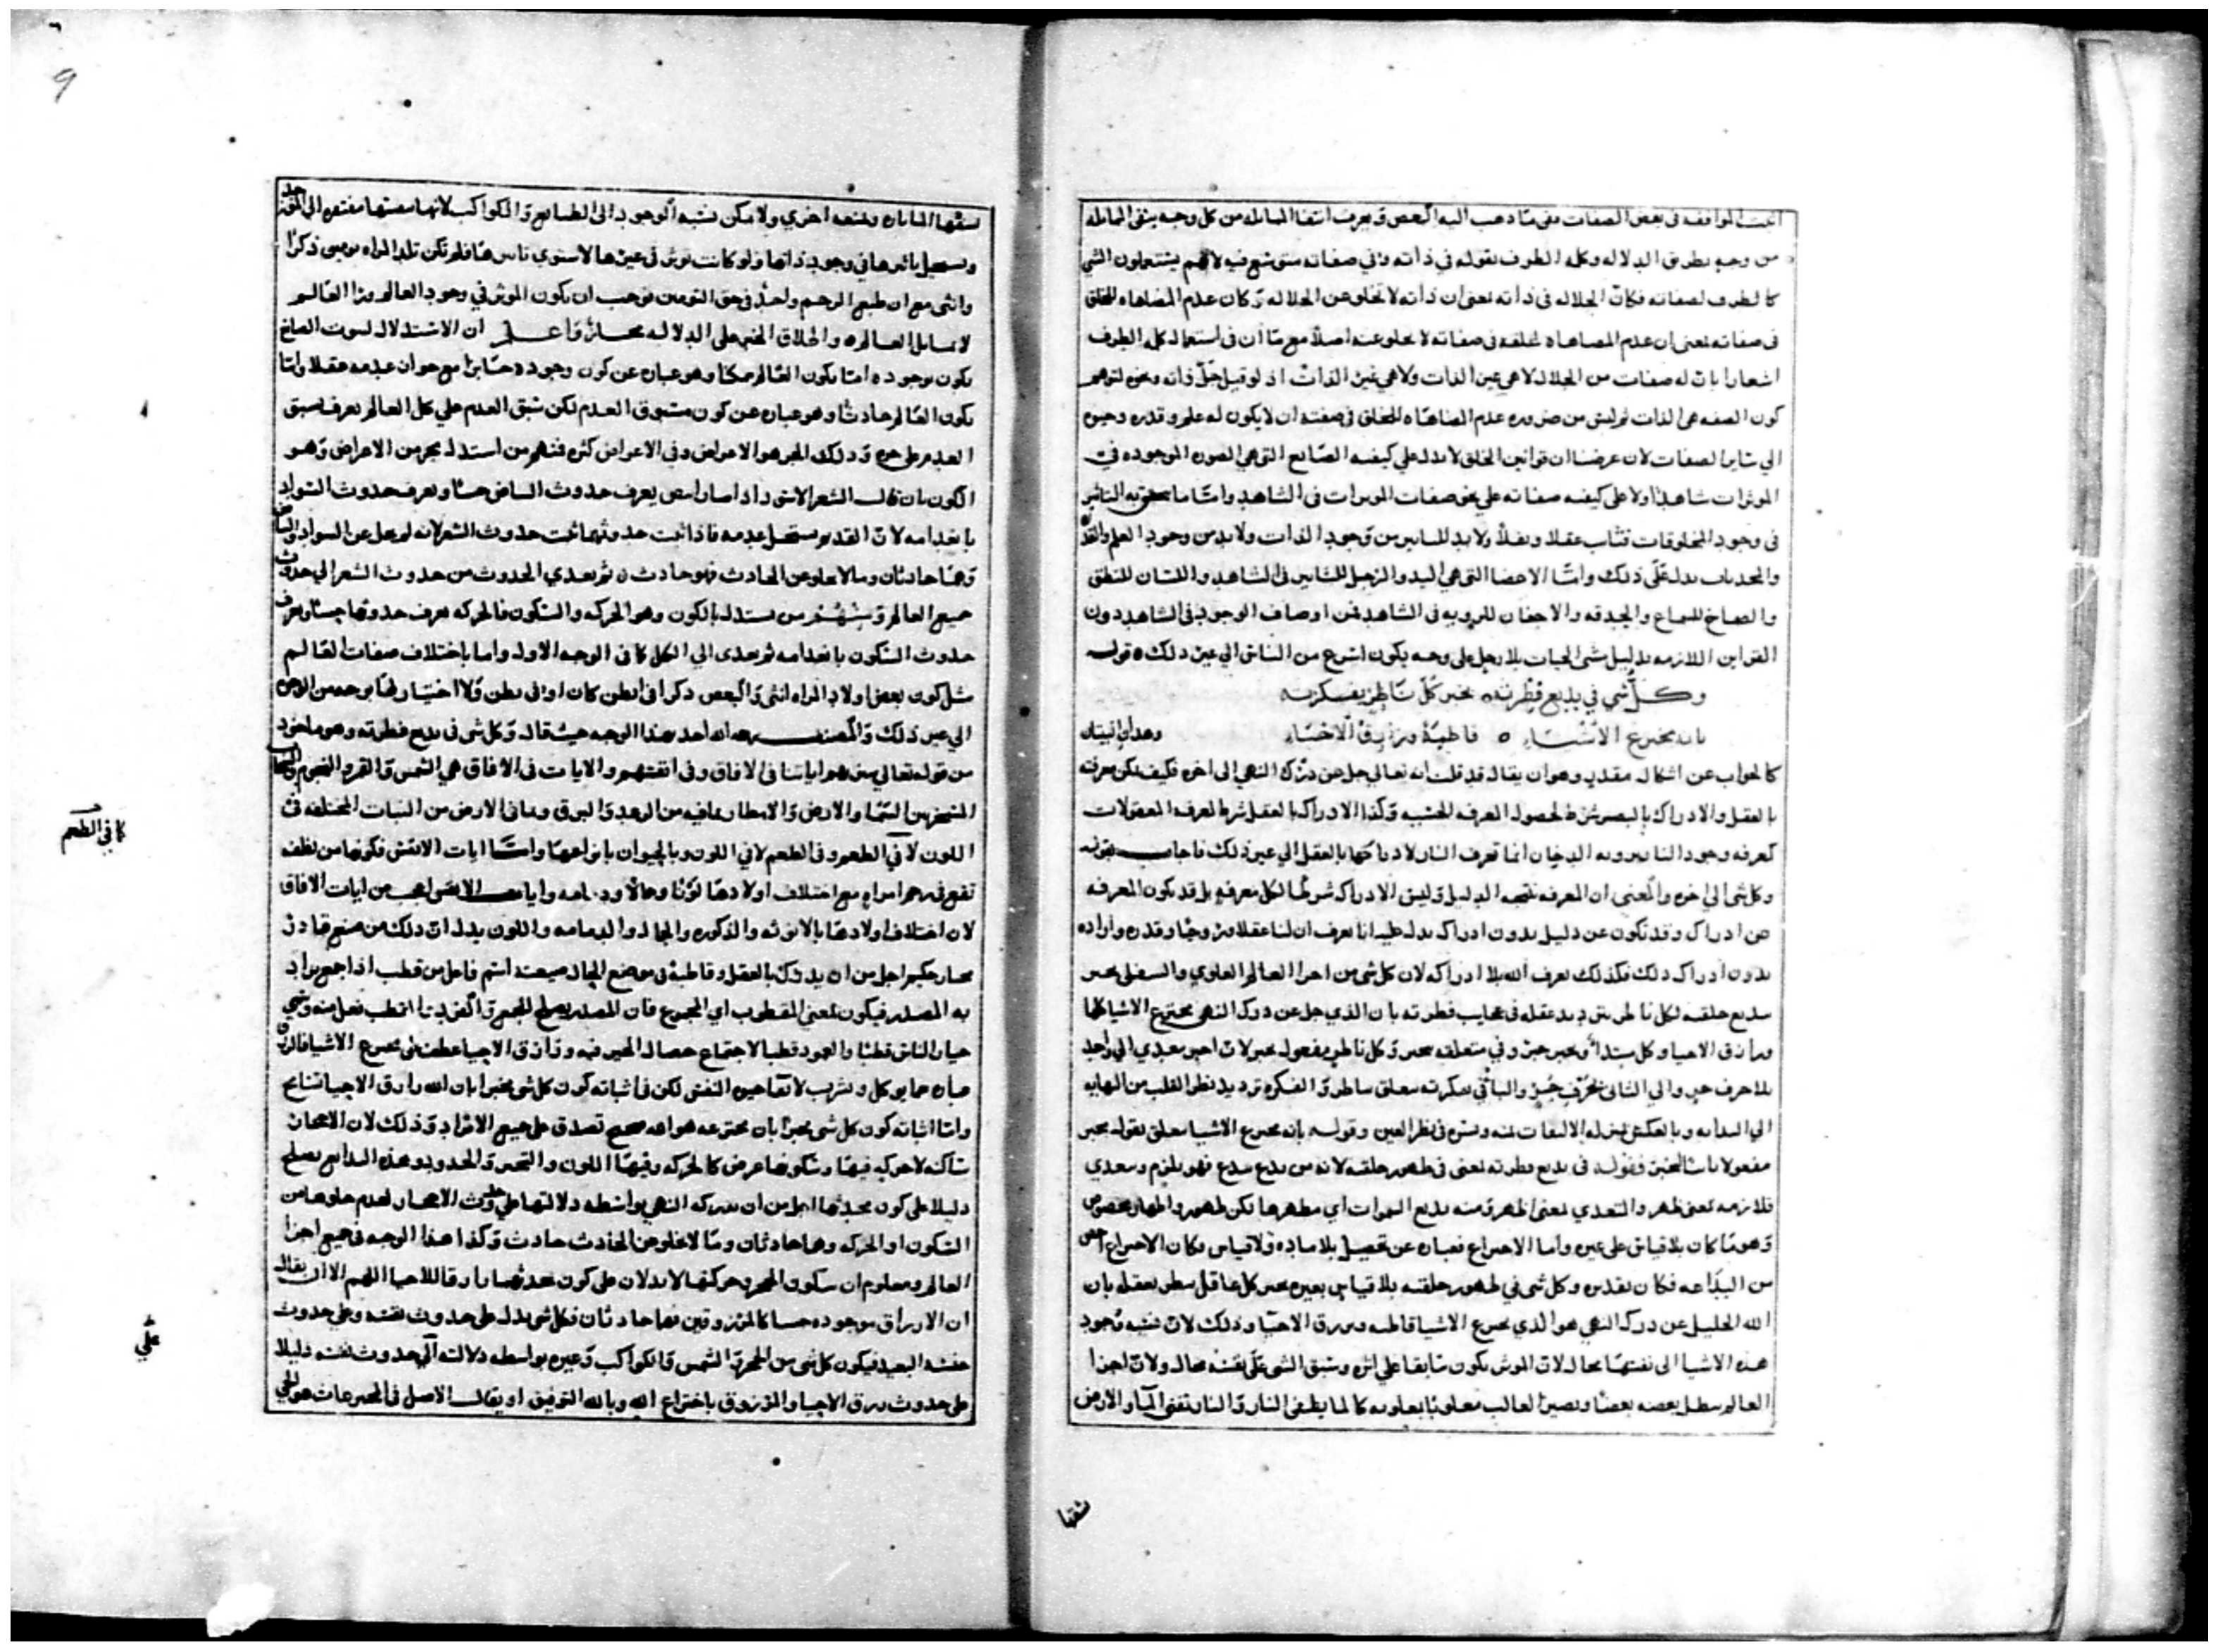 اثبت الموافقه في بعض الصفات مفى ما ذهب اليه البعض ويعرف انتفا المماثله من كل وجه بنفى المماثله
من وجه بطريق الدلاله وكله الطرف بقوله في ذاته وفي صفاته لانهم يستعملون الشي
كالطرف لصفاته فكان الجلاله في ذاته بمعنى ان ذاته لا تخلو عن الجلاله وكان عدم المضاهاه للخلق
في صفاته بمعنى ان عدم المضاهاه لخلقه في صفاته لا يخلو عنه اصلا مع ما ان في استعمال كله الطرف
اشعارا بان له صفات من الجلال لا هي عين الذات ولا هي غير الذات اذ لو قيل جل ذاته ونحوه لتوهم
كون الصفه هي الذات ثم ليس من ضروره عدم المضاهاه للخلق في صفته ان لا يكون له علم وقدره وحيوه
الي ساير الصفات لان عرضنا ان قوانين الخلق لا تدل علي كيفيه الصانع التي هي الصون الموجوده في
الموثرات شاهدا ولا على كيفيه صفاته علي نحو صفات الموثرات في الشاهد واما ما يتحقق به التاثير
في وجود المخلوقات فثابت عقلا ونقلا ولا بد للتاثير من وجود الذات ولا بد من وجود العلم والقدره
والمحدثات تدل علي ذلك واما الاعضا التي هي اليد والرجل للتاثير في الشاهد واللسان للنطق
والصماخ للسماع والحدقه والاجفان للرويه في الشاهد فمن اوصاف الوجود في الشاهد دون
القراين اللازمه بدليل مشى الحيات بلا رجل على وجه يكون اسرع من الناس الي غير ذلك ه قوله
وكل شي في بديع فطرته ه يخبر كل ناظر بفكرته
بانه مخترع الاشياء ه قاطبة ورازق الاحياء وهذان البيتان
كالجواب عن اشكال مقدر وهو ان يقال قد قلت انه تعالى جل عن درك النهى الى اخره فكيف يمكن معرفته
بالعقل والادراك بالبصر شرط لحصول المعرفه الحسيه وكذا الادراك بالعقل شرط لمعرفه المعقولات
كمعرفه وجود النار برويه الدخان انما تعرف النار لادراكها بالعقل الي غير ذلك فاجاب بقوله
وكل شي الي اخره والمعنى ان المعرفه نتيجه الدليل وليس الادراك شرطا لكل معرفه بل قد يكون المعرفه
عن ادراك وقد تكون عن دليل بدون ادراك يدل عليه انا نعرف ان لنا عقلا وروحا وقدره واراده
بدون ادراك ذلك فكذلك نعرف الله بلا ادراكه لان كل شي من اجزا العالم العلوي والسفلي يخبر
ببديع خلقته لكل ناظر عقله في عجايب فطرته بان الذي جل عن درك النهى مخترع الاشيا كلها
ورازق الاحيا وكل مبتدأ ويخبر خبره وفي متعلقه بيخبر وكل ناظر مفعول يخبر لان اخبر يتعدي الي واحد
بلا حرف جر والي الثاني بحرف جر والبا في بفكرته متعلق بناظر والفكره ترديد نظر القلب من النهايه
الي البدايه وبالعكس بمنزله الالتفات يمنه ويسره في نظر العين وقوله بانه مخترع الاشيا متعلق بقوله يخبر
مفعولا ثانيا ليخبر فقوله في بديع فطرته بمعنى في ظهور خلقته لانه من بدع يبدع فهو يلزم ويتعدي
فلازمه بمعنى ظهر والمتعدي بمعنى اظهر ومنه بديع السموات اي مظهرها لكن ظهور واظهار مخصوص
وهو ما كان بلا قياس على غيره واما الاختراع فعباره عن تحصيل بلا ماده ولا قياس فكان الاختراع اخص
من البداعه فكان تقديره وكل شي في ظهور خلقته بلا قياس بغيره يخبر كل عاقل ينظر بعقله بان
الله الجليل عن درك النهى هو الذي يخترع الاشيا قاطبه ويرزق الاحيا وذلك لان نسبه وجود
هذه الاشيا الى نفسها محال لان الموثر يكون سابقا علي اثره وسبق الشي علي نفسه محال ولان اجزا
العالم يبطل بعضه بعضا ويصير الغالب مغلوبا بمغلوبه كالما يطفي النار والنار تفني الما والارض
شقها
نشقها المياه وتمنعه اخري ولا يمكن نسبه الوجود الى الطبايع والكواكب لانها بنفسها مفتقره الي الموجد
ويستحيل تاثيرها في وجود ذاتها ولو كانت توثر في غيرها لاستوي تاثيرها فلم تكن تلد المراه توءمين ذكرا
وانثى مع ان طبع الرحم واحد في حق التوءمين فوجب ان يكون الموثر في وجود العالم ورا العالم
لا يماثل العالم ه واطلاق الخبر على الدلاله مجاز واعلم ان الاستدلال لثبوت الصانع
يكون بوجوده اما بكون العالم ممكنا وهو عباره عن كون وجوده جايزا مع جواز عدمه عقلا واما
بكون العالم حادثا وهو عباره عن كون مسبوق العدم لكن سبق العدم علي كل العالم يعرف بسبق
العدم على جزءه وذلك الجزء هو الاعراض وفي الاعراض كثره فمنهم من استدل بجزء من الاعراض وهو
اللون بان قال الشعر الاسود اذا صار ابيض يعرف حدوث البياض حسا ويعرف حدوث السواد
بانعدامه لان القديم يستحيل عدمه فاذا ثبت حدوثهما ثبت حدوث الشعر لانه لم يخل عن السواد والبياض
وهما حادثان وما لا يخلو عن الحادث فهو حادث ه ثم يعدي الحدوث من حدوث الشعر الي حدوث
جميع العالم ومنهم من يستدل بالكون وهو الحركه والسكون فالحركه يعرف حدوثها حسا ويعرف
حدوث السكون بانعدامه ثم يعدى الي الكل كما في الوجه الاول واما باختلاف صفات العالم
مثل كون بعض اولاد المراه انثى والبعض ذكرا في بطن كان او في بطن ولا اختيار لها بوجه من الوجوه
الي غير ذلك والمصنف رحمه الله اخذ بهذا الوجه حيث قال وكل شي في بديع فطرته وهو ماخوذ
من قوله تعالى سنريهم اياتنا في الافاق وفي انفسهم والايات في الافاق هي الشمس والقمر والنجوم والسحاب
المسخر بين السما والارض والامطار بما فيه من الرعد والبرق وما في الارض من النبات المختلفه في
اللون لا في الطعم وفي الطعم لا في اللون وبالحيوان بانواعها واما ايات الانفس فكونها من نطفه
تقع في رحم امراه مع اختلاف اولادها لونا وحالا ودمامه وايات الانفس اعجب من ايات الافاق
لان اختلاف اولادها بالانوثه والذكوره والجمال والدمامه واللون يدل ان ذلك من صنع قادر
مختار حكيم اجل من ان يدرك بالعقل وقاطبه في موضع الحال صيغته اسم فاعل من قطب اذا جمع يراد
به المصدر فيكون بمعنى المقطوب اي المجموع فان المصدر يصلح للجمع والفرد
خيار الناس قطبا والعمود قطبا لاجتماع خصال الخير فيه ورازق الاحيا عطف على مخترع الاشيا فالرزق
عباره عما يوكل ويشرب لابقا حيوه النفس لكن في اثباته كون كل شي مخبرا بان الله رازق الاحيا تسامح
واما اثباته كون كل شي مخبرا بان مخترعه هو الله صحيح تصدق على جميع الافراد وذلك لان الاحجار
ساكنه لا حركه فيها وسكونها عرض كالحركه وفيها اللون والتحيز والحدود وهذه البدايع تصلح
دليلا على كون محدثها اجل من ان يدركه النهي بواسطه دلالتها على حدوث الاحجار لعدم خلوها من
السكون او الحركه وهما حادثان وما لا يخلو عن الحادث حادث وكذا هذا الوجه في جميع اجزا
العالم ومعلوم ان سكون الحجر وحركتها لا يدلان على كون محدثها رازقا للاحيا اللهم الا ان يقال
ان الارزاق موجوده حسا كالمرزوقين فهما حادثان فكل شي يدل على حدوث نفسه وعلي حدوث
جنسه البعيد فيكون كل شي من الحجر والشمس والكواكب وغيره بواسطه دلالته الي حدوث نفسه دليلا
على حدوث رزق الاحيا والمرزوق باختراع الله وبالله التوفيق او يقال الاصل في المخترعات هو الحي
كما في الطعم
علي
9